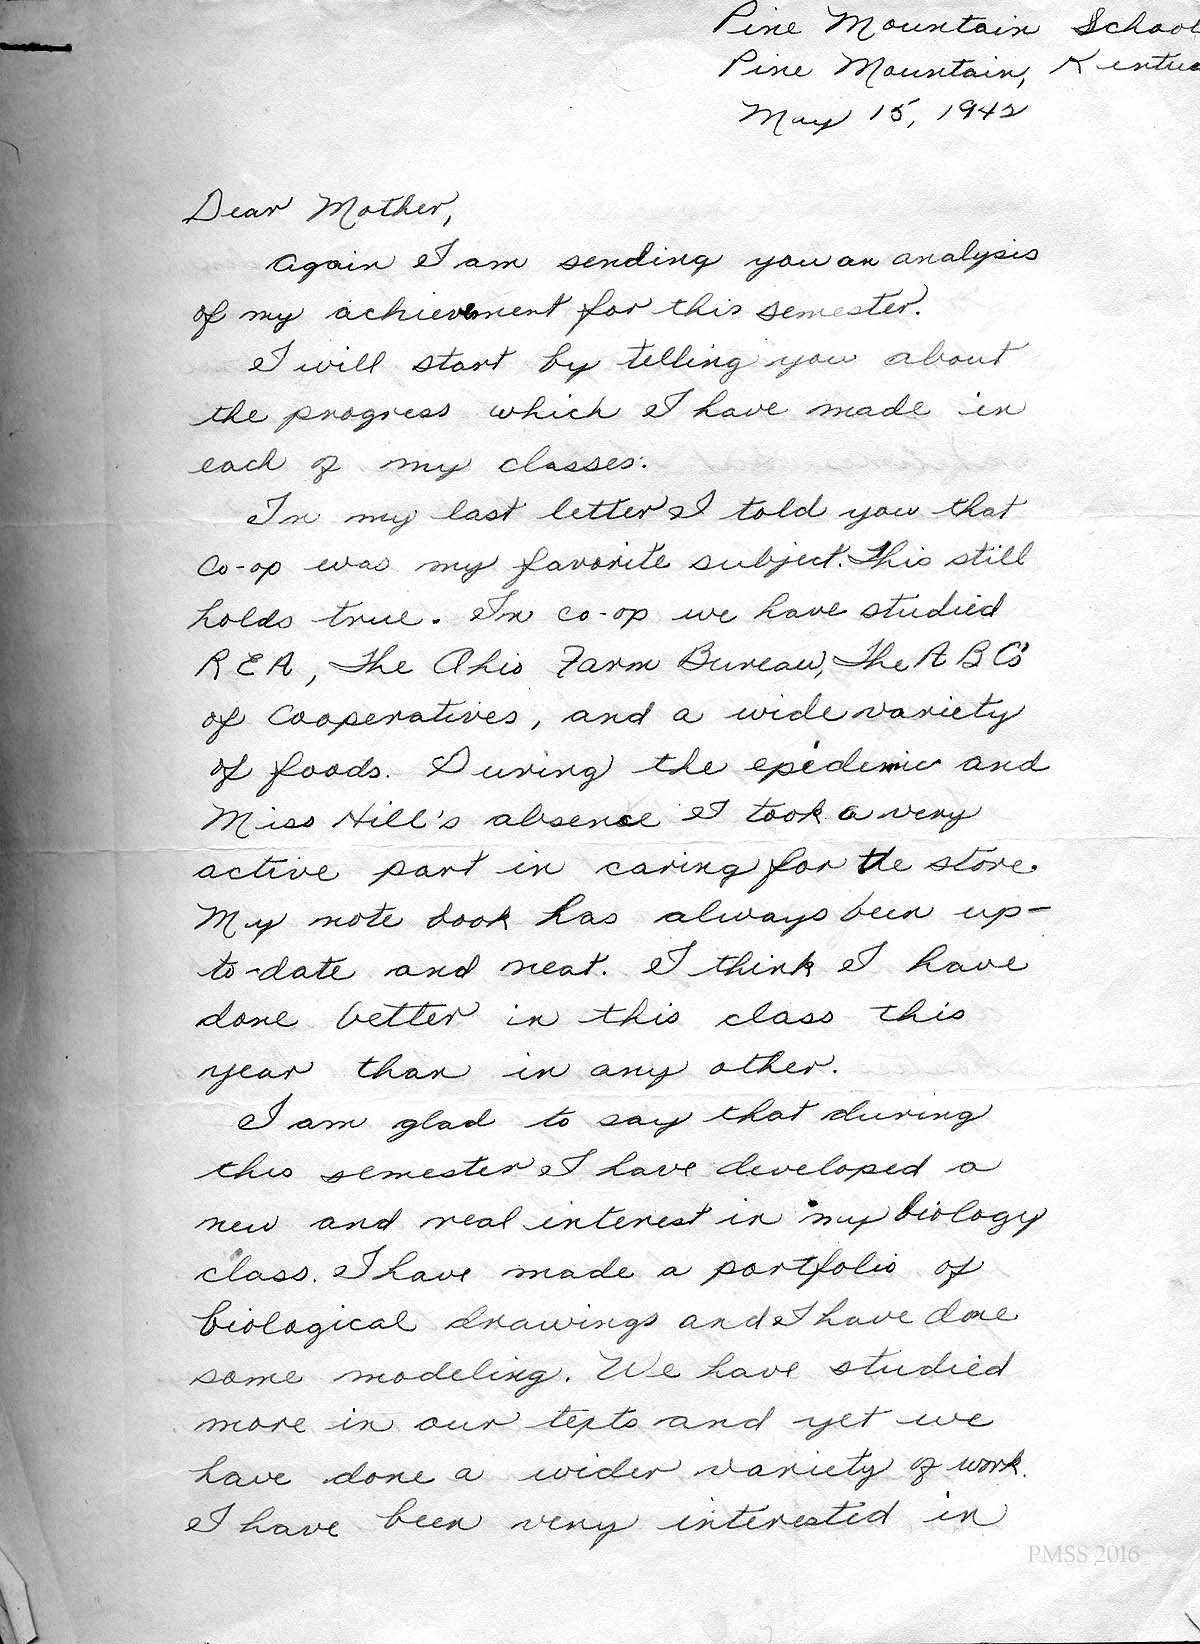 Pine Mountain School
Pine Mountain, Kentuc
May 15, 1942
Dear Mother,
Again I am sending you an analysis
of my achievement for this semester.
I will start by telling you about
the progress which I have made in
each of my classes.
In my last letter I told you that
co-op was my favorite subject. This still
holds true. In co-op we have studied
REA, The Ohio Farm Bureau, The A B C's
of Cooperatives, and a wide variety
of foods. During the epidemic and
Miss Hill's absence I took a very
active part in caring for the store.
My note book has always been up-
to-date and neat. I think I have
done better in this class this
year than in any other.
I am glad to say that during
this semester I have developed a
new and real interest in my biology
class. I have made a portfolio of
biological drawings and I have done
some modeling. We have studied
more in our texts and yet we
have done a wider variety of work.
I have been very interested in
PMSS 2016